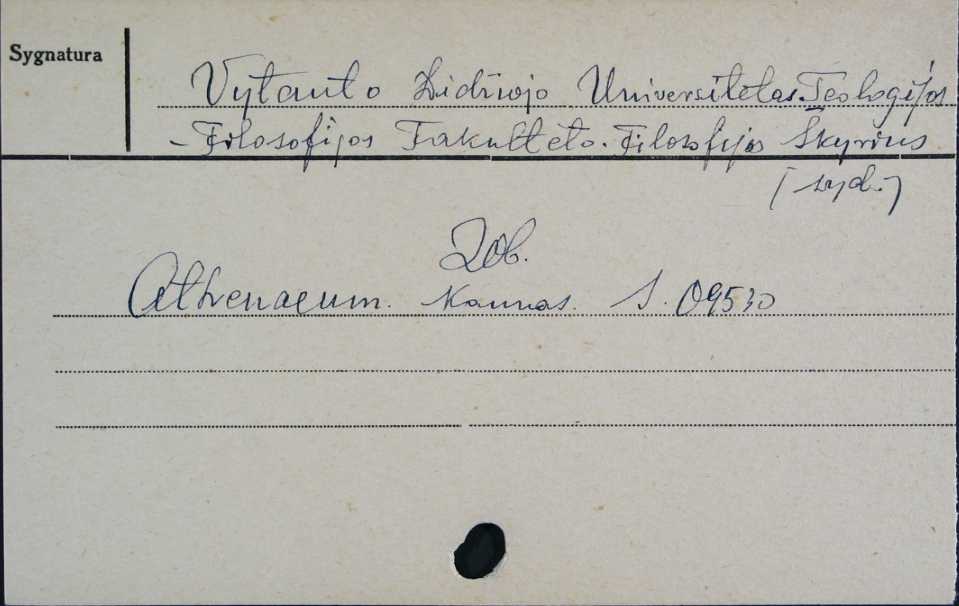 Sygnatura
Vytauto Didžiojo Universitetas. Teologijos
- Filosofijos Fakultėto. Filosofijos Skyrius
[wyd.]
Zob.
Athenaeum. Kaunas. S. 09530